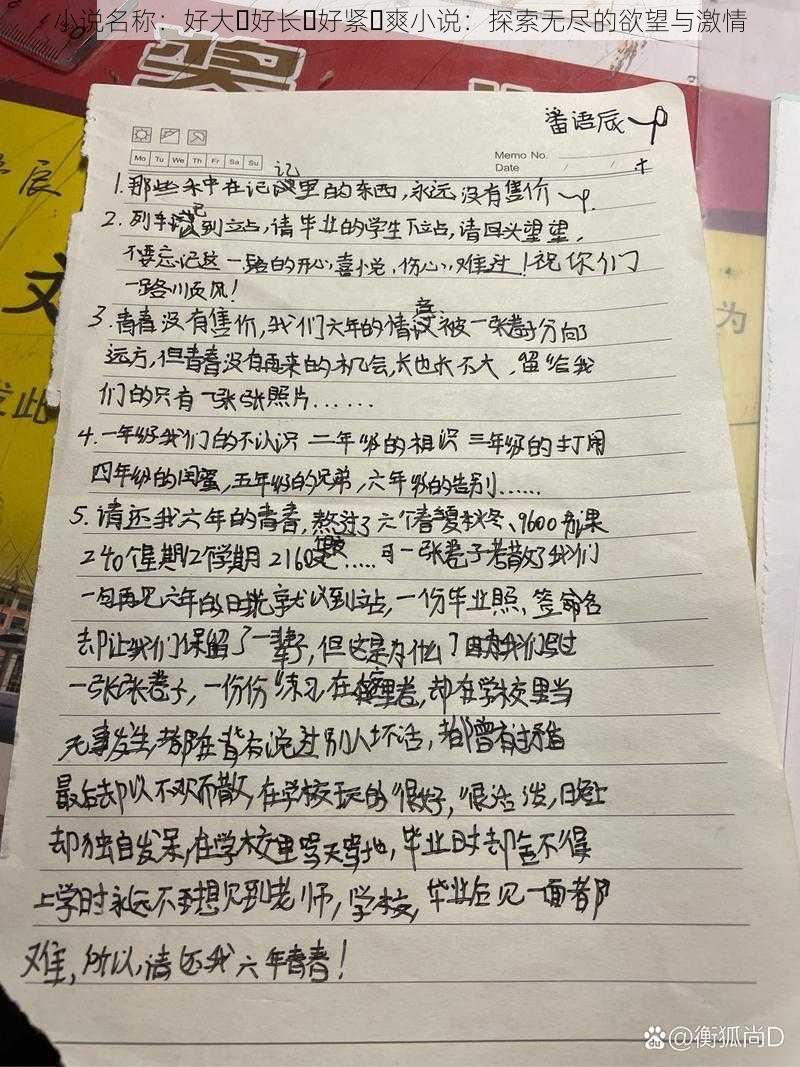 小说名称：好大好长好紧爽小说：探索无尽的欲望与激情
Mo Tu We Th Fr Sa Su
Memo No.
Date
记
1.那些年在记里的东西,永远没有售价
2.列车到立占,请毕业的学生下立占,请回头望望,
不要忘记这一路的开心,喜悦,伤心,难过!祝你们
一路川页风!
3.青春没有售价,我们六年的情被一张卷子分向
远方,但青春没有再来的机会,长也长不大,留给我
们的只有一张张照片......
4.一年级我们的不认识 二年级的相识 三年级的打闹
四年级的闺蜜,五年级的兄弟,六年级的告别......
5.请还我六年的青春,熬过了六个春夏秋冬、9600节课
240个星期12个学期2160......一张卷子若散了我们
一句再见六年的时光就以到立占,一份毕业照、签命名
却让我们保留了一辈子,但这是为什么?因为我们写过
一张张卷子,一份份练习在里卷,却在学校里当
无事发生,都在背有说过别人坏话,都曾有过矛盾
最后却以不欢而散,在学校玩的很好,很活泼,日晚上
却独自发呆,在学校里骂天骂地,毕业时却舍不得
上学时永远不想见到老师,学校,毕业后见一面都
难,所以,请还我六年青春!
@衡狐尚D